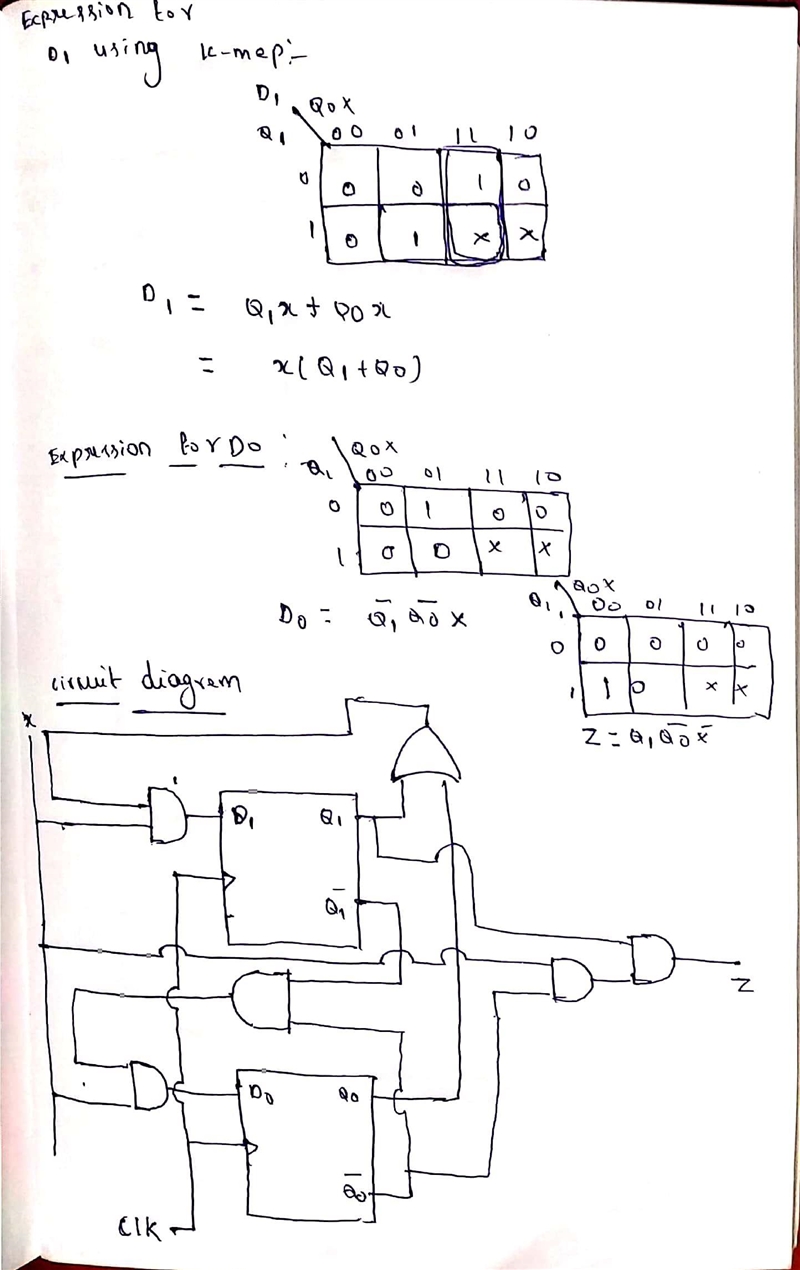 Expression for
D1 using k-map:-
D1 Q0x
Q1 00 01 11 10
0 0 0 1 0
1 0 1 x x
D1 = Q1x + Q0x
= x(Q1 + Q0)
Expression for D0 :
Q0x
Q1 00 01 11 10
0 0 1 0 0
1 0 0 x x
D0 = Q̅1 Q̅0 x
Q0x
Q1 00 01 11 10
0 0 0 0 0
1 1 0 x x
Z = Q1 Q̅0 x̅
circuit diagram
x
D1 Q1
Q̅1
Z
D0 Q0
Q̅0
Clk